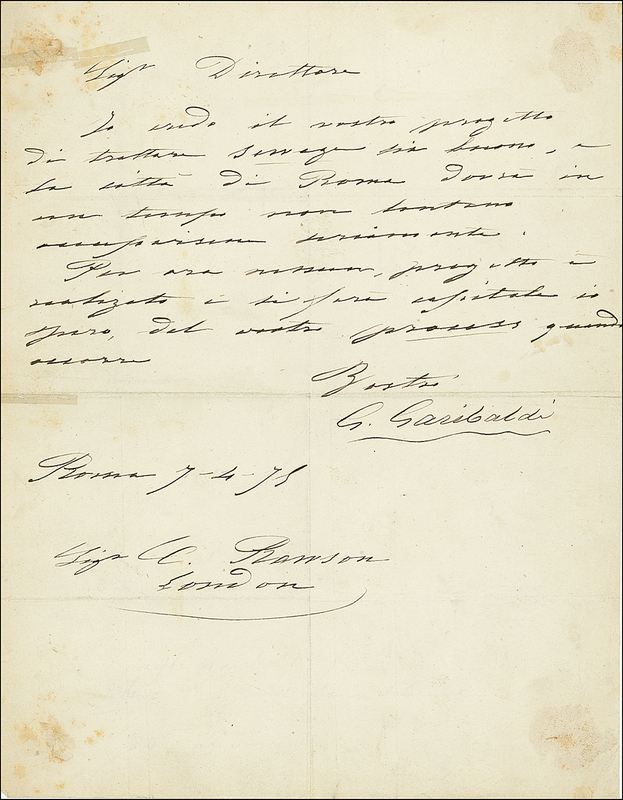 Sigr Direttore
Io credo il vostro progetto
di trattare Sewage sia buono, e
la città di Roma dovrà in
un tempo non lontano
occuparsene seriamente.
Per ora nessun, progetto è
realizato e si farà capitale io
spero, del vostro process quando
occorre
Vostro
G. Garibaldi
Roma 7-4-75
Sigr C. Rawson
London